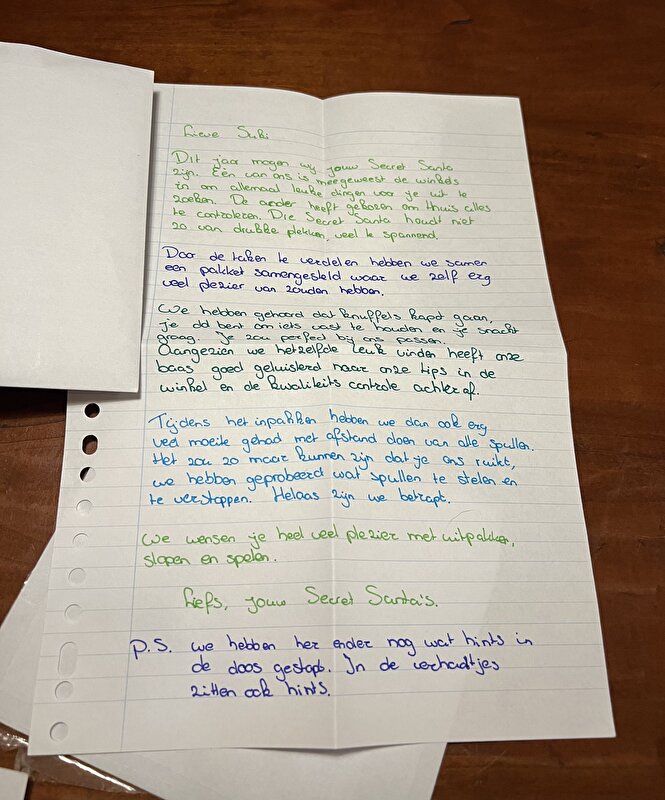 Lieve Suki
Dit jaar mogen wij jouw Secret Santa
zijn. Eén van ons is meegeweest de winkels
in om allemaal leuke dingen voor je uit te
zoeken. De ander heeft gekozen om thuis alles
te controleren. Die Secret Santa houdt niet
zo van drukke plekken, veel te spannend.
Door de taken te verdelen hebben we samen
een pakket samengesteld waar we zelf erg
veel plezier van zouden hebben.
We hebben gehoord dat knuffels kapot gaan,
je dol bent om iets vast te houden en je snackt
graag. Je zou perfect bij ons passen.
Aangezien we hetzelfde leuk vinden heeft onze
baas goed geluisterd naar onze tips in de
winkel en de kwaliteits controle achteraf.
Tijdens het inpakken hebben we dan ook erg
veel moeite gehad met afstand doen van alle spullen.
Het zou zo maar kunnen zijn dat je ons ruikt,
we hebben geprobeerd wat spullen te stelen en
te verstoppen. Helaas zijn we betrapt.
We wensen je heel veel plezier met uitpakken,
slopen en spelen.
Liefs, jouw Secret Santa's.
P.S. we hebben her ender nog wat hints in
de doos gestopt. In de verhaaltjes
zitten ook hints.